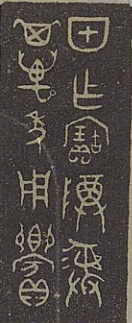 甲乍寶尊彝
其萬年用鄉賓